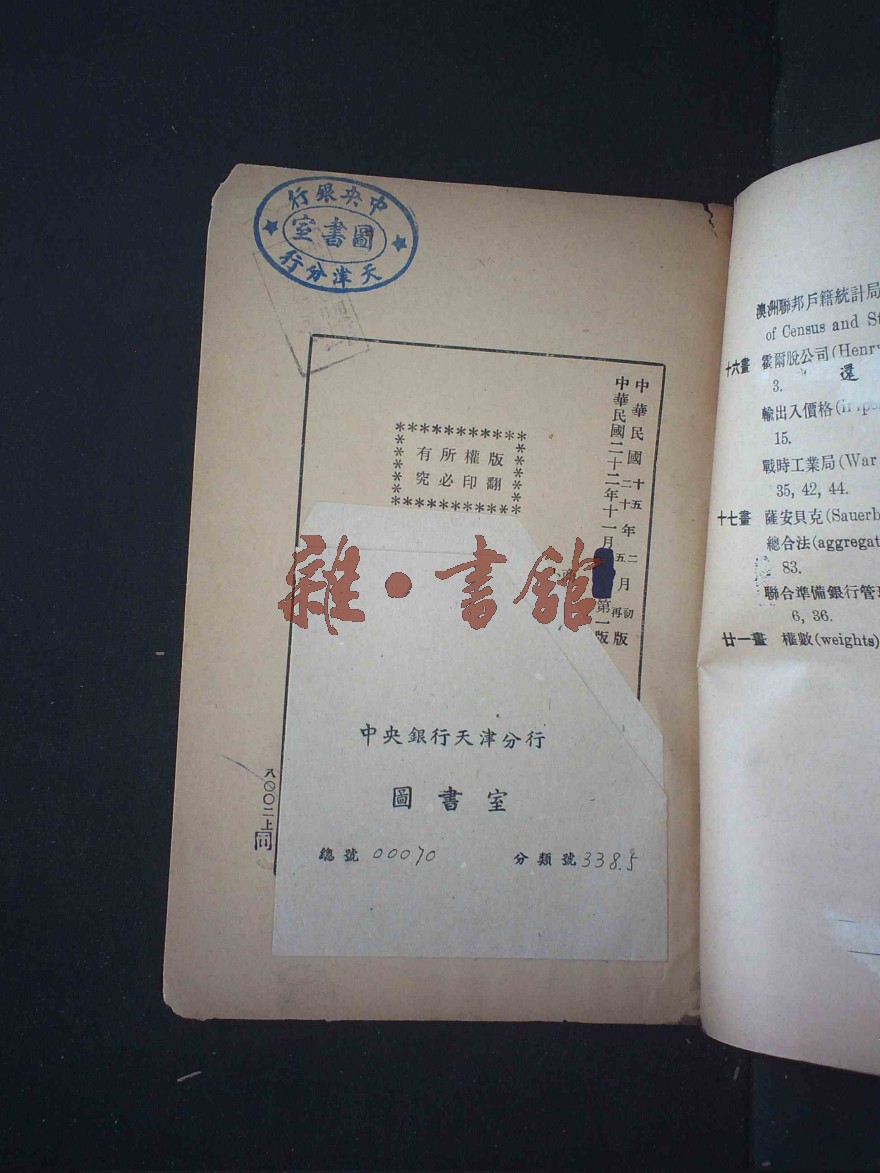 中央銀行
圖書室
天津分行
中華民國十五年二月初版
二十年五月再版
中華民國二十二年十一月
第一版
版權所有
翻印必究
雜·書館
中央銀行天津分行
圖書室
總號 00070
分類號 338.5
八〇〇二上
澳洲聯邦戶籍統計局
of Census and St
十六畫 霍爾脫公司(Henry
3.
還
輸出入價格
15.
戰時工業局(War
35, 42, 44.
十七畫 薩安貝克(Sauerb
總合法(aggregat
83.
聯合準備銀行管理
6, 36.
廿一畫 權數(weights)